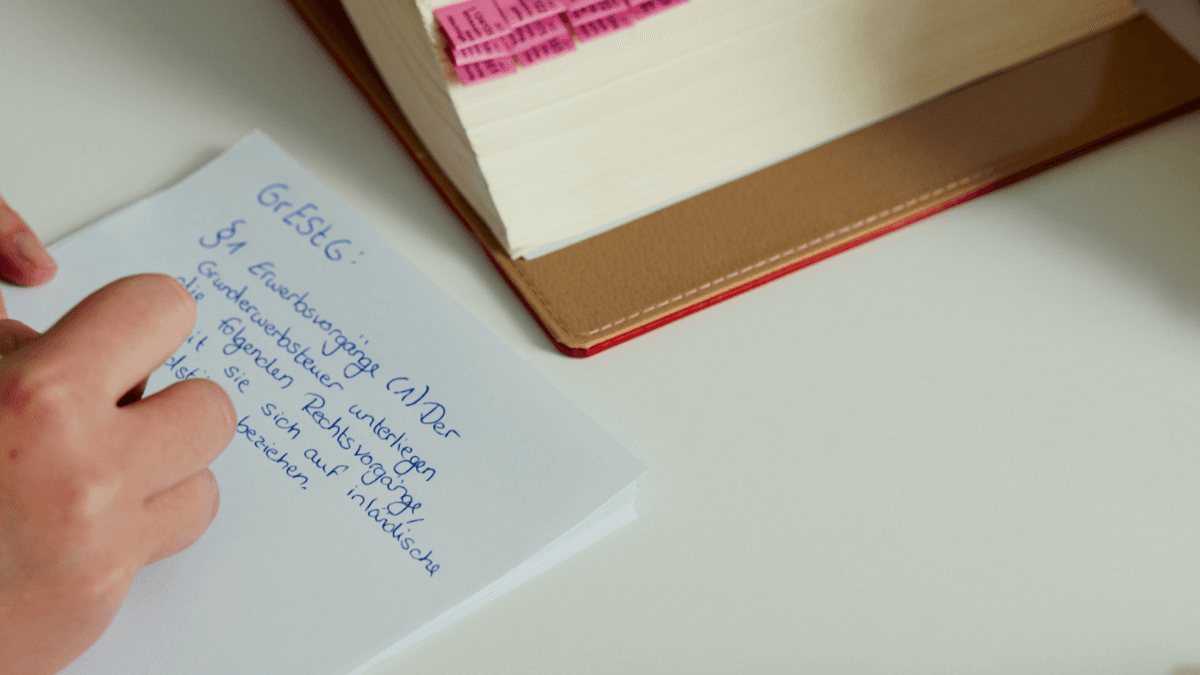 GrEStG:
§1 Erwerbsvorgänge (1) Der
Grunderwerbsteuer unterliegen
die folgenden Rechtsvorgänge,
sie sich auf inländische
beziehen.